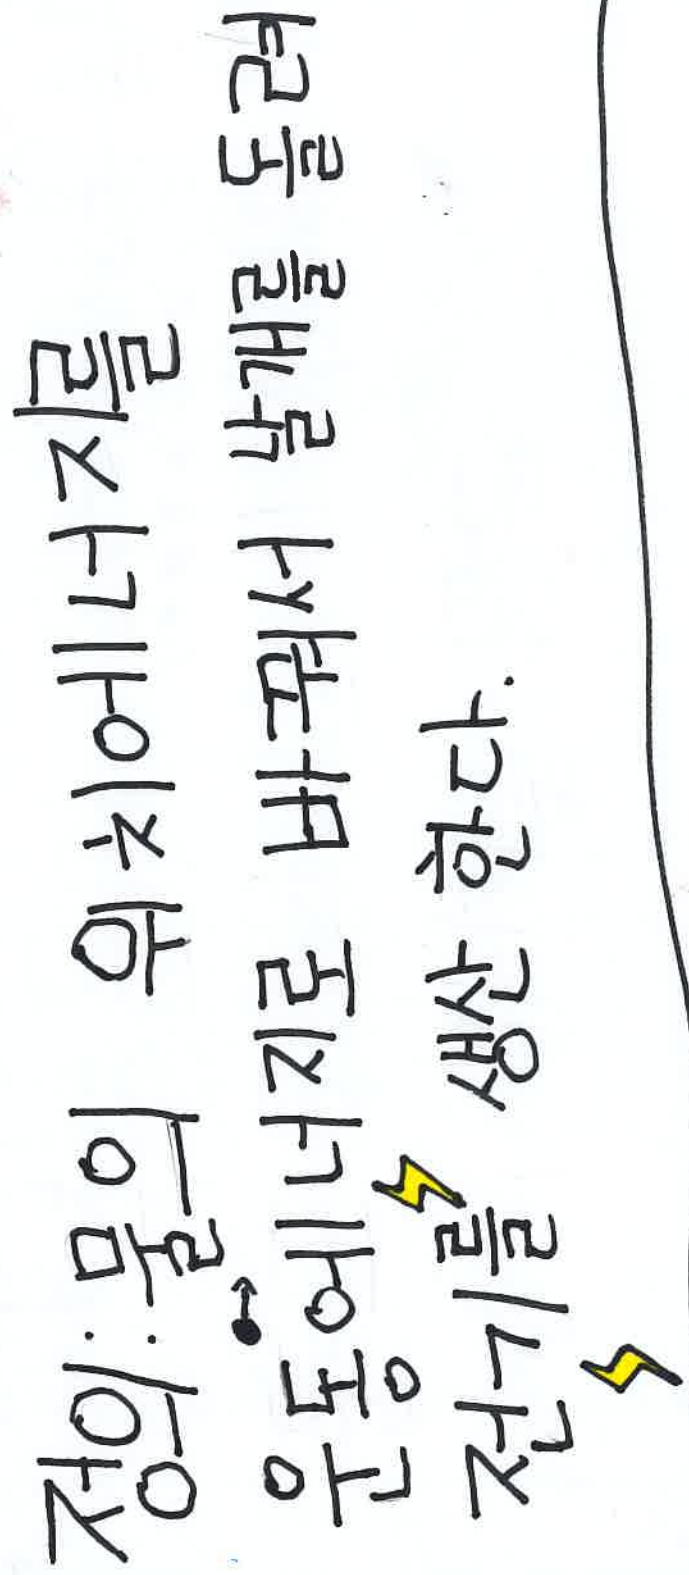 정의: 물의 위치에너지를
운동에너지로 바꿔서 날개를 돌려
전기를 생산 한다.